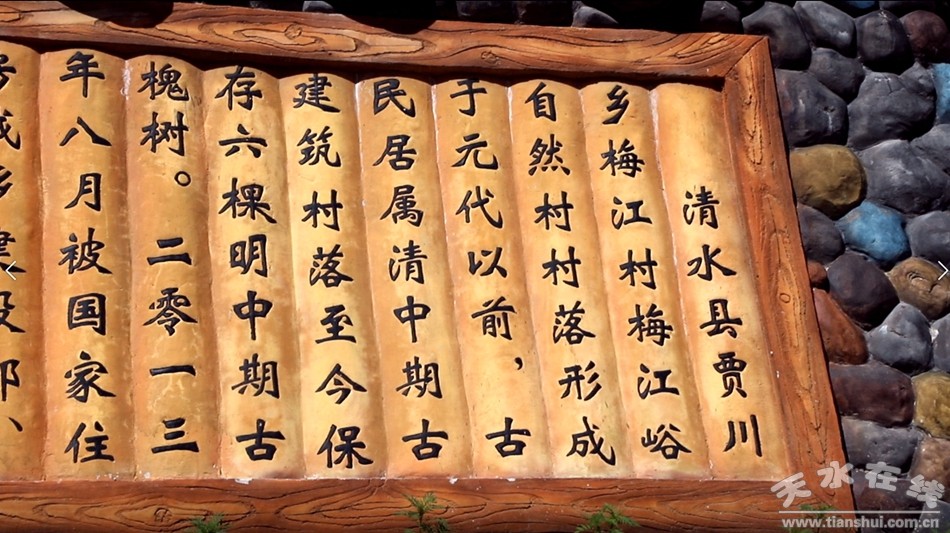 清水县贾川
乡梅江村梅江峪
自然村村落形成
于元代以前，古
民居属清中期古
建筑村落至今保
存六棵明中期古
槐树。二零一三
年八月被国家住
乡建设部、
天水在线
www.tianshui.com.cn